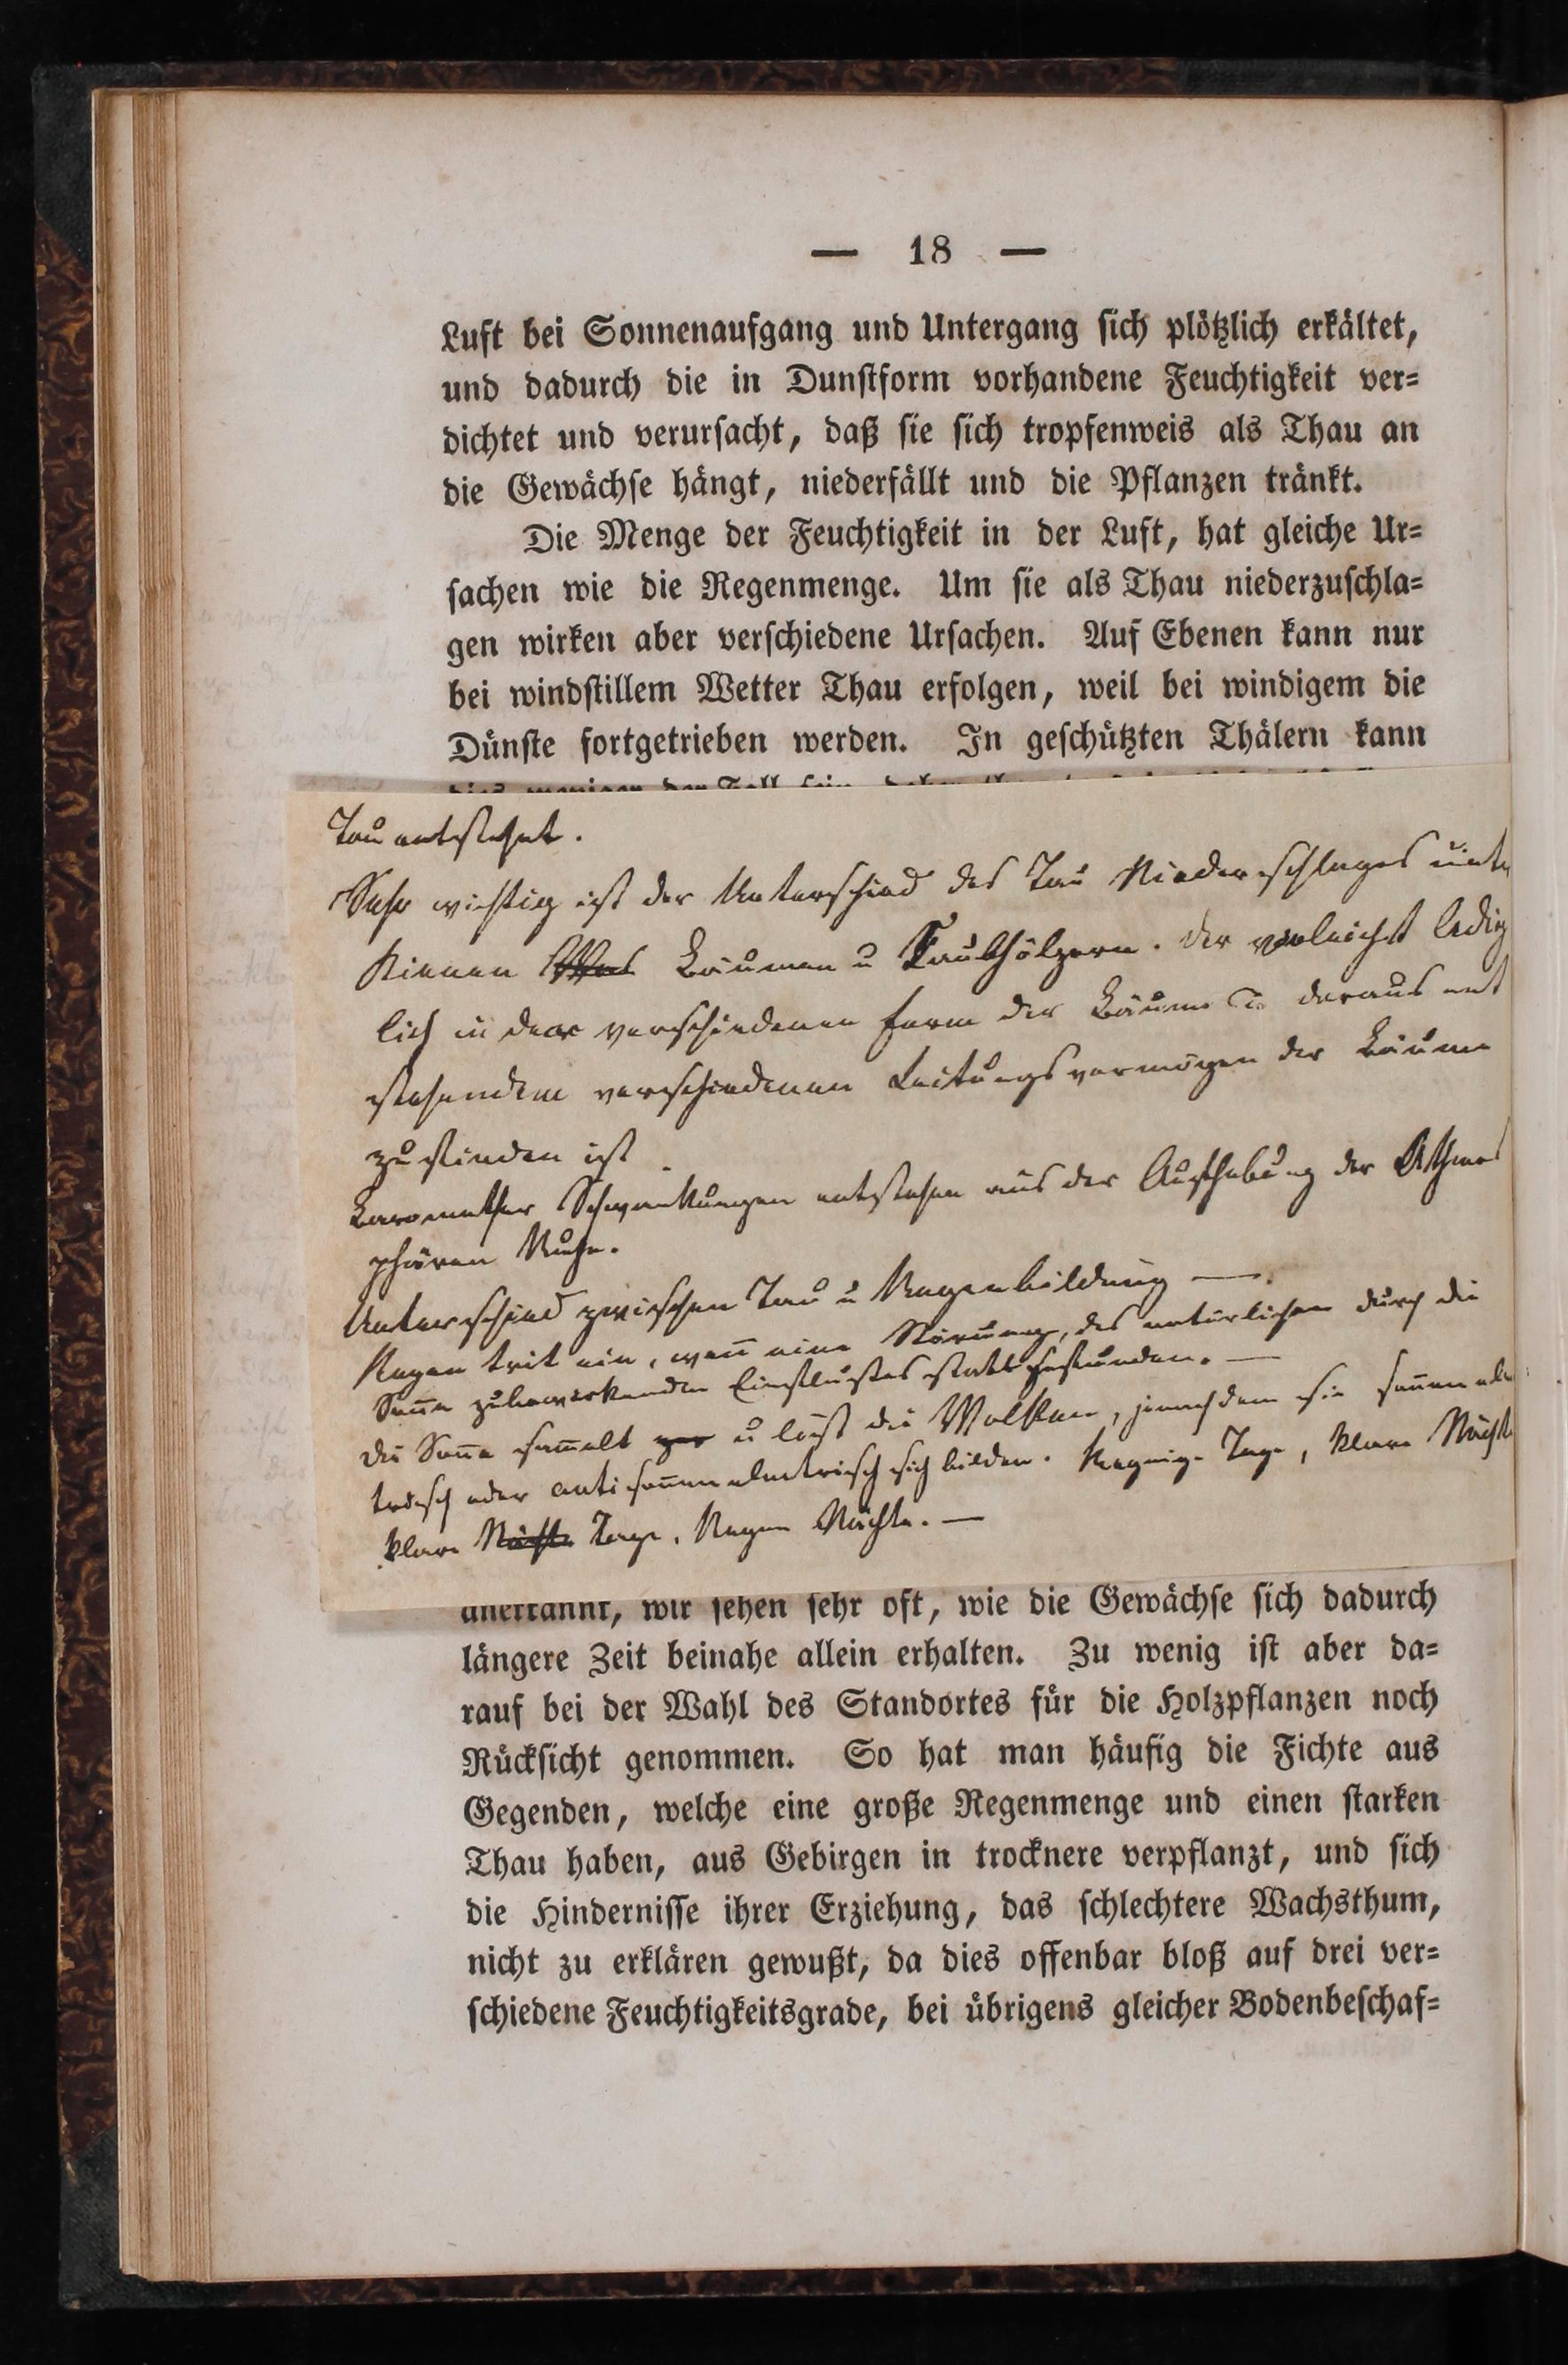 — 18 —
Luft bei Sonnenaufgang und Untergang sich plötzlich erkältet,
und dadurch die in Dunstform vorhandene Feuchtigkeit ver=
dichtet und verursacht, daß sie sich tropfenweis als Thau an
die Gewächse hängt, niederfällt und die Pflanzen tränkt.
Die Menge der Feuchtigkeit in der Luft, hat gleiche Ur=
sachen wie die Regenmenge. Um sie als Thau niederzuschla=
gen wirken aber verschiedene Ursachen. Auf Ebenen kann nur
bei windstillem Wetter Thau erfolgen, weil bei windigem die
Dünste fortgetrieben werden. In geschützten Thälern kann
Tau entsteht.
Sehr wichtig ist der Unterschied des Tau Niederschlages unter
Kienen Bäumen u Laubhölzern. der vieleicht ledig
lich in der verschiedenen form der Bäume u daraus ent
stehendem verschiedenen Leitungsvermögen der Bäume
zu finden ist
Baromether Schwankungen entstehen aus der Aufhebung der Athmos
phären Ruhe.
Unterschied zwischen Tau u Regenbildung —.
Regen trit ein, wen̄ eine Störung, des natürlichen durch die
Son̄e zubewerkenden Einflußes statt gefunden. —
die Son̄e sam̄elt u läst die Wolken, jenachdem sie son̄en elec
trisch oder anti son̄en electrisch sich bilden. Regnige Tage, klare Nächte
klare Tage, Regen Nächte. —
anerkannt, wir sehen sehr oft, wie die Gewächse sich dadurch
längere Zeit beinahe allein erhalten. Zu wenig ist aber da=
rauf bei der Wahl des Standortes für die Holzpflanzen noch
Rücksicht genommen. So hat man häufig die Fichte aus
Gegenden, welche eine große Regenmenge und einen starken
Thau haben, aus Gebirgen in trocknere verpflanzt, und sich
die Hindernisse ihrer Erziehung, das schlechtere Wachsthum,
nicht zu erklären gewußt, da dies offenbar bloß auf drei ver=
schiedene Feuchtigkeitsgrade, bei übrigens gleicher Bodenbeschaf=